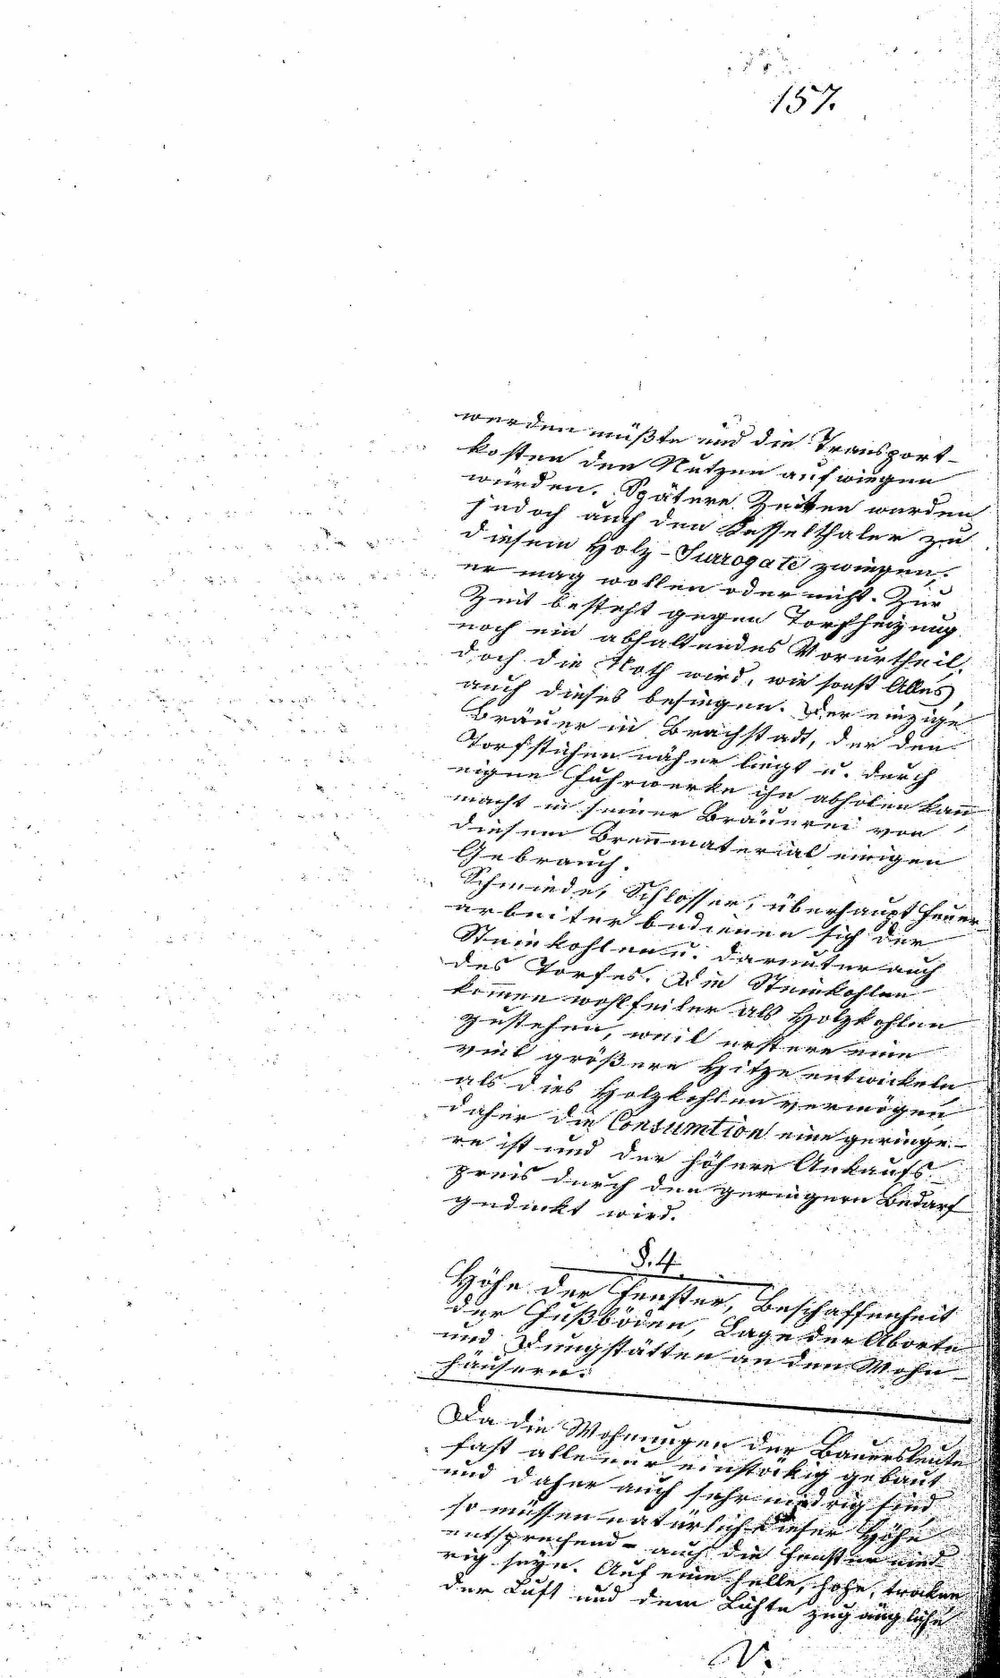 157.
werden müßte und die Transport-
kosten den Nutzen aufwiegen
würden. Spätere Zeiten werden
jedoch auch den Kesselthaler zu
diesem Holz-Surrogate zwingen,
er mag wollen oder nicht. Zur
Zeit besteht gegen Torfheizung
noch ein abhaltendes Vorurtheil,
doch die Noth wird, wie sonst Alles,
auch dieses besiegen. Der einzige
Bräuer in Brachstadt, der den
Torfstichen näher liegt u. durch
eigne Fuhrwerke ihn abholen kan̅,
macht in seiner Bräuerei von
diesem Bren̅material einigen
Gebrauch.
Schmiede, Schlosser, überhaupt Feuer-
arbeiter bedienen sich der
Steinkohlen u. darunter auch
des Torfes. Die Steinkohlen
kom̅en wohlfeiler als Holzkohlen
zustehen, weil erstere eine
viel größere Hitze entwickeln
als dies Holzkohlen vermögen,
daher die Consumtion eine geringe-
re ist und der höhere Ankaufs-
preis durch den geringern Bedarf
gedeckt wird.
§. 4.
Höhe der Fenster, Beschaffenheit
der Fußböden, Lage der Aborte
und Dungstätten an den Wohn-
häusern.
Da die Wohnungen der Bauersleute
fast alle nur einstökig gebaut
und daher auch sehr niedrig sind
so müssen natürlich dieser Höhe
entsprechend auch die Fenster nied-
rig seyn. Auf eine helle, hohe, trockene
der Luft und dem Lichte zugängliche